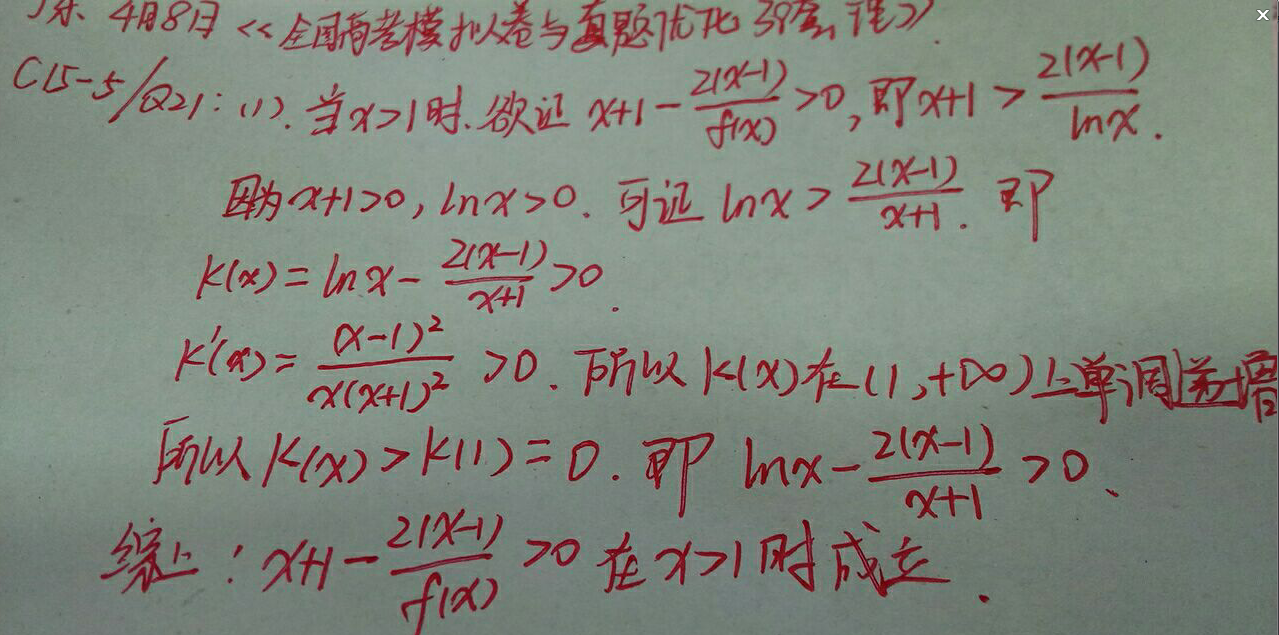 4月8日 <<全国高考模拟卷与真题优化 39套 理>>
C15-5/Q21: (1). 当x>1时. 欲证 x+1 - 2(x-1)/f(x) >0, 即x+1 > 2(x-1)/lnx.
因为x+1>0, lnx>0. 可证 lnx > 2(x-1)/x+1. 即
K(x) = lnx - 2(x-1)/x+1 >0.
K'(x) = (x-1)²/x(x+1)² >0. 所以 K(x)在(1,+∞)上单调递增
所以 K(x) > K(1) = 0. 即 lnx - 2(x-1)/x+1 >0、
综上: x+1 - 2(x-1)/f(x) >0 在 x>1时成立.